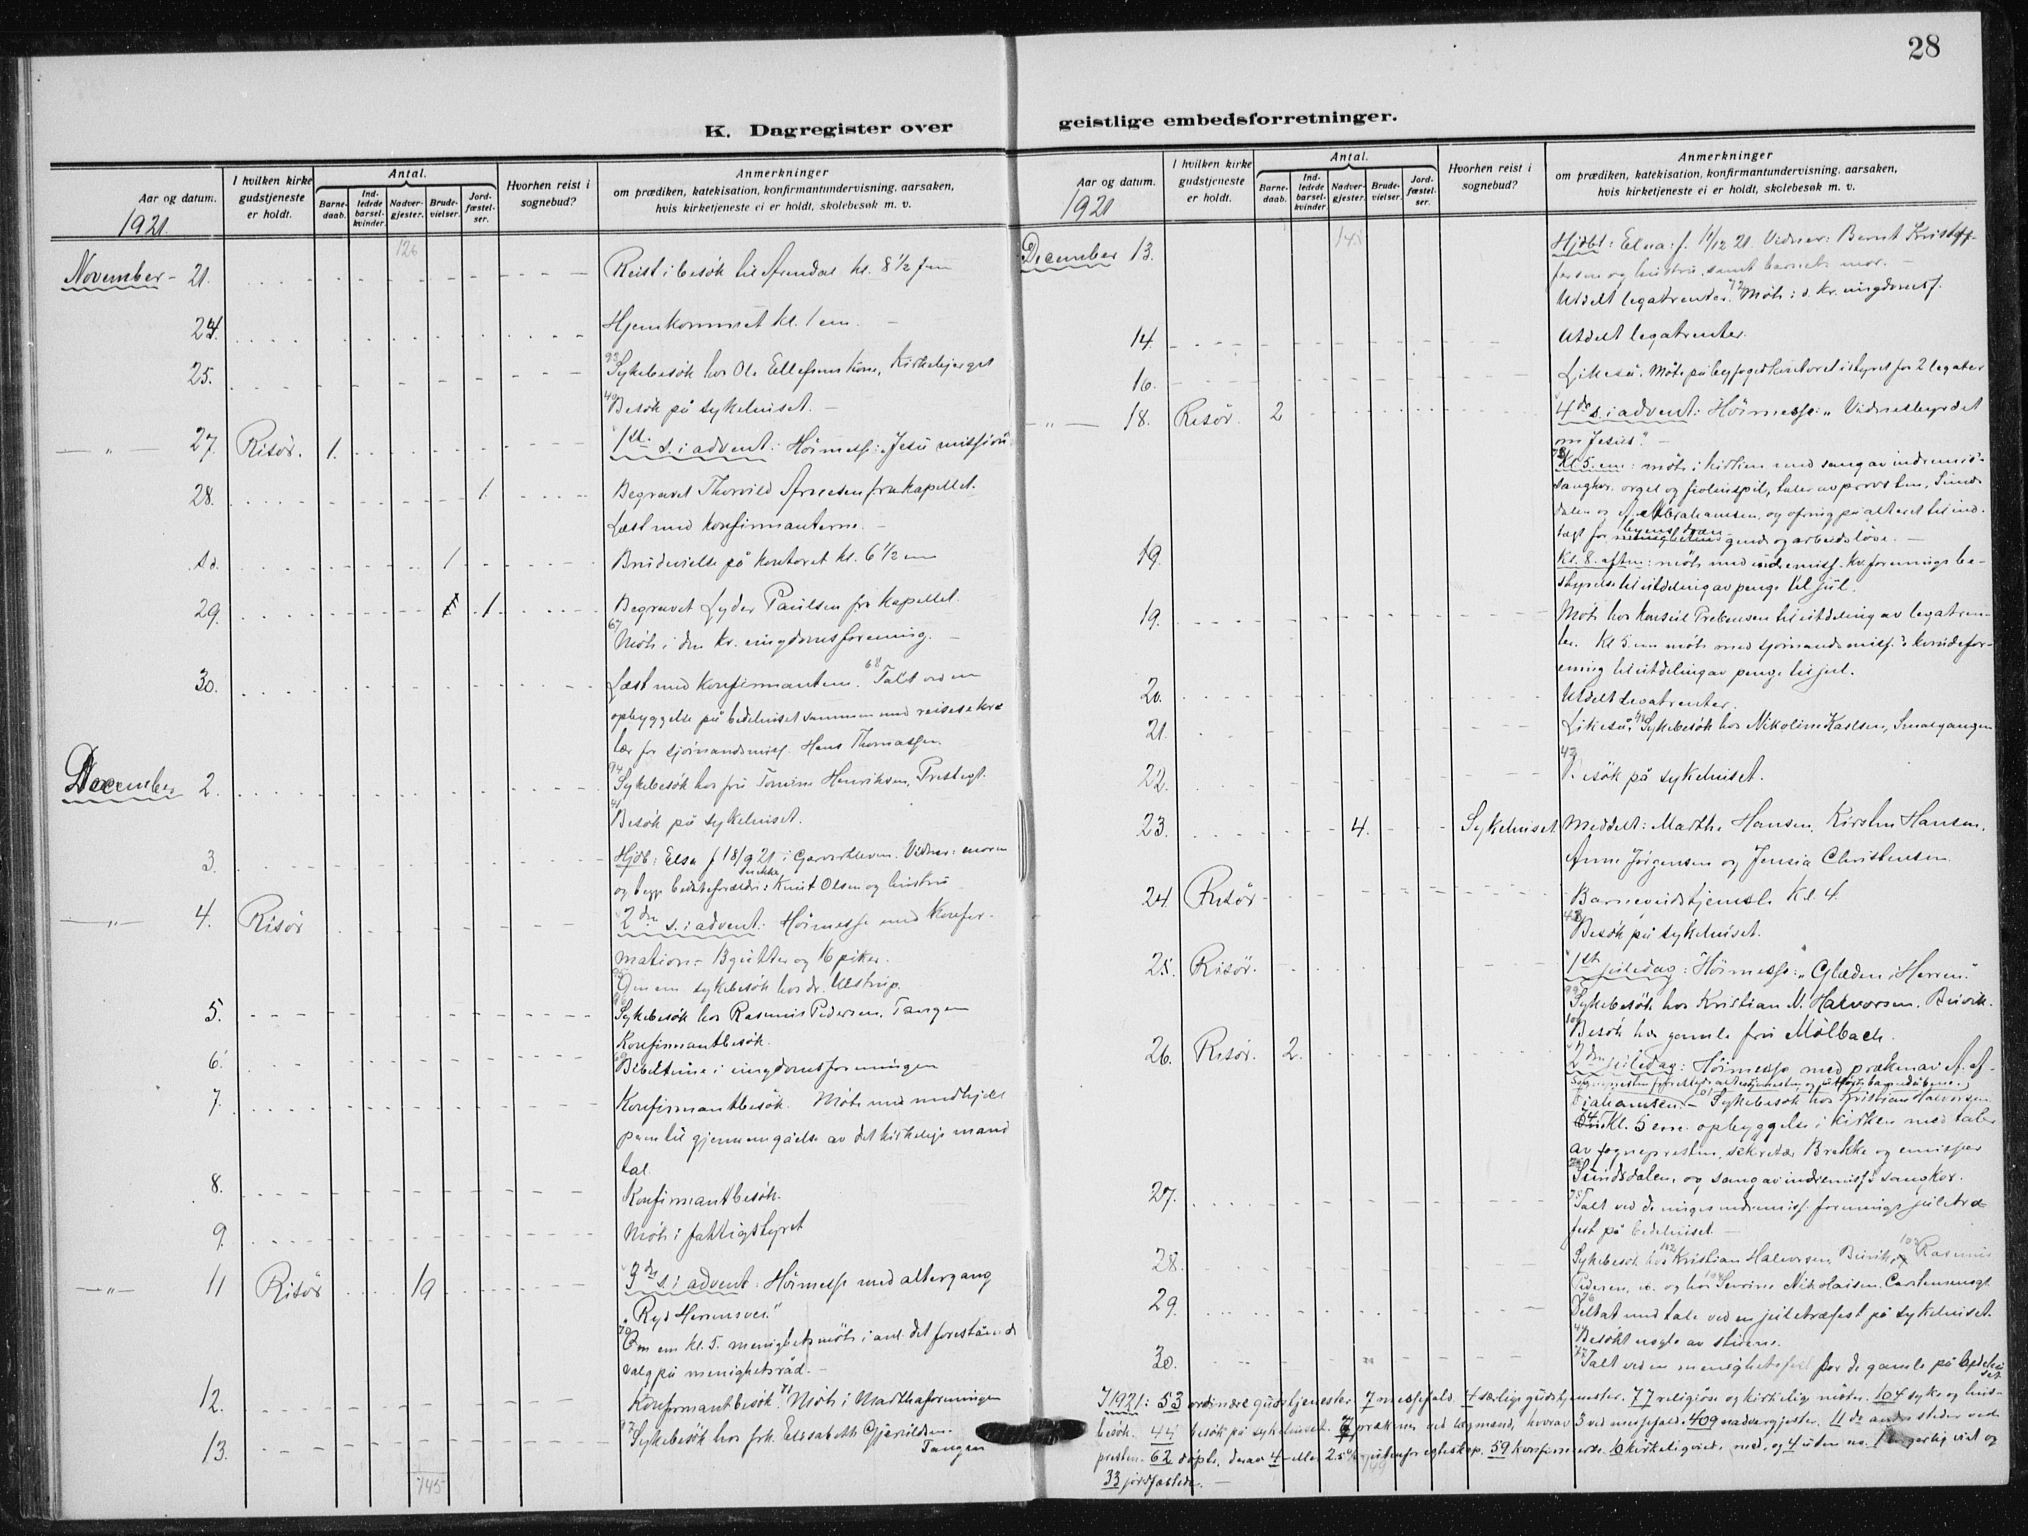 28
K. Dagregister over geistlige embedsforretninger.
Aar og datum.
1921.
I hvilken kirke gudstjeneste er holdt.
Antal.
Barnedaab.
Indledede barselkvinder.
Nadvergjester.
Brudevielser.
Jordfæstelser.
Hvorhen reist i sognebud?
Anmerkninger
om prædiken, katekisation, konfirmantundervisning, aarsaken,
hvis kirketjeneste ei er holdt, skolebesøk m. v.
126
November - 21. Reist i besøk til Arendal kl. 8 1/2 fm
24. Hjemkommet kl. 1 em. -
25. 93 Sykebesøk hos Ole Ellefsens kone, Kirkebjerget
40 Besøk på sykehuset. -
- " - 27. Risør. 1. 1ste s. i advent: Høimesse: Jesu mission
28. 1. Begravet Thorvild fra kapellet.
Læst med konfirmanterne. -
s.d. 1 Brudevielse på kontoret kl. 6 1/2 em
29. 1. Begravet Lyder Paulsen fra kapellet.
67 Møte i den kr. ungdomsforening. -
30. Læst med konfirmanterne. 68 Talt ved en
opbyggelse på bedehuset sammen med reisesekre
tær for sjømandsmiss. Hans Thomassen.
December 2. 94 Sykebesøk hos fru Tomine Henriksen, Prestegt.
41 Besøk på sykehuset.
3. Hjdb: Elsa f 18/9 21 i Vidner: moren
og begge bedsteforældre: Knut Olsen og hustru
- " - 4. Risør 2den s. i advent: Høimesse med konfir-
mation - 13 gutter og 16 piker.
95 Om em sykebesøk hos dr. Ulstrup.
5. 96 Sykebesøk hos Rasmus Pedersen, Tangen
Konfirmantbesøk.
6. 69 Bibeltime i ungdomsforeningen
7. Konfirmantbesøk. Møte med medhjel
pere til gjennemgåelse av det kirkelige mand
tal.
8. Konfirmantbesøk.
9. Møte i fattigstyret
- " - 11 Risør 19 3die s. i advent: Høimesse med altergang
"Ryd Herrens vei."
70 Om em kl. 5. menighetsmøte i anl. det forestående
valg på menighetsråd. -
12. Konfirmantbesøk. 71 Møte i Marthaforeningen
13. 97 Sykebesøk hos frk. Elisabeth Gjerulden.
Tangen
145
Aar og datum.
1921
I hvilken kirke gudstjeneste er holdt.
Antal.
Barnedaab.
Indledede barselkvinder.
Nadvergjester.
Brudevielser.
Jordfæstelser.
Hvorhen reist i sognebud?
Anmerkninger
om prædiken, katekisation, konfirmantundervisning, aarsaken,
hvis kirketjeneste ei er holdt, skolebesøk m. v.
145
December 13. Hjdbt: Elna: f. 11/12 21. Vidner: Bernt Kristof-
fersen og hustru, samt barnets mor. -
Utdelt legatrenter. 72 Møte i d. kr. ungdomsf.
14. Utdelt legatrenter.
16. Likeså. Møte på byfogedkontoret i styret for 2 legater
- " - 18. Risør. 2 4de s. i advent: Høimesse: "Vidnesbyrdet
om Jesus". -
73 Kl 5. em: møte i kirken med sang av indremis-
sangkor, orgel og fiolinspil, taler av provsten, Sunds
dalen og A. Abrahamsen, og ofring på alteret til ind-
tægt for byens trængende og arbeidsløse. -
19. Kl. 8. aften: møte med indremiss. kv.forenings be-
styrelse til utdeling av penge til jul.
19. Møte hos konsul Prebensen til utdeling av legatren-
ter. Kl 5. em møte med sjømandsmiss.s kvindefor-
ening til utdeling av penge til jul.
20. Utdelt legatrenter.
21. Likeså. 98 Sykebesøk hos Nikoline Karlsen, Smalgangen
22. 42 Besøk på sykehuset.
23. 4. Sykehuset Meddelt: Marthe Hansen, Kirsten Hansen,
Anne Jørgensen og Jensia Christensen.
24 Risør Barnegudstjeneste kl. 4.
43 Besøk på sykehuset.
25. Risør. 1ste juledag: Høimesse: "Glæden i Herren."
99 Sykebesøk hos Kristian N. Halvorsen, Buvik.
100 Besøk hos gamle fru Mölbach.
26. Risør. 2. 2den juledag: Høimesse med præken av A. A-
brahamsen. - 101 Sykebesøk hos Kristian Halvorsen
74 Kl. 5 em. opbyggelse i kirken med taler
av sognepresten, sekretær Brekke og emissær
Sundsdalen, og sang av indremiss.s sangkor.
27. 75 Talt ved de unges indremiss. forenings juletræ
fest på bedehuset -
28. Sykebesøk hos 102 Kristian Halvorsen, Buvik, 103 Rasmus
Pedersen, og hos 104 Severine Nikolaisen, Carstensensgt.
29. 76 Deltat med tale ved en juletræfest på sykehuset.
44 Besøkt nogle av stuerne.
30. 77 Talt ved en menighetsfest for de gamle på bedehu
set
I 1921: 53 ordinære gudstjenester. 7 messefald. 4 særlige gudstjenester. 77 religiøse og kirkelige møter. 104 syke og hus-
besøk. 44 besøk på sykehuset. præken ved lægmænd, hvorav 3 ved messefald. 409 nadvergjester. 11 de andre steder ved
presten. 62 døpte, derav 4 eller utenfor egteskap. 59 konfirmerte. 6 kirkelig viet, med, og 4 uden viet og
33 jordfæstede. -